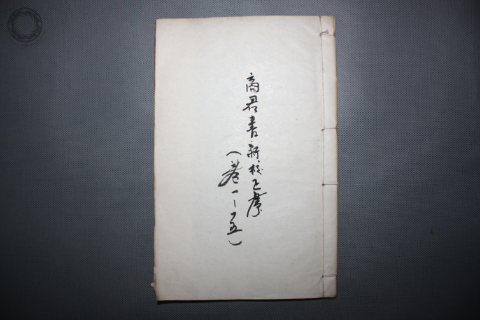 商君書新校正稾
（卷一—五）